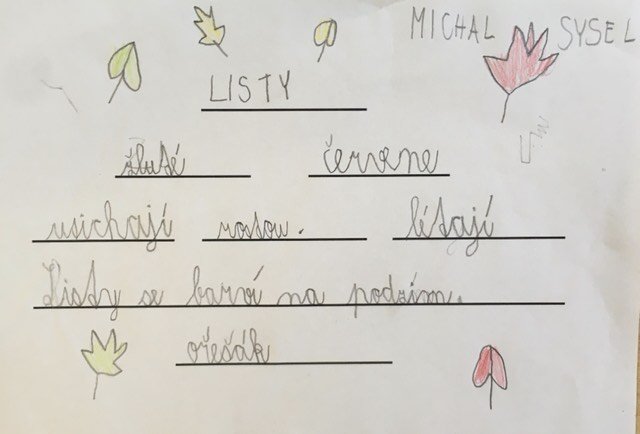 MICHAL SYSEL
LISTY
žluté červene
usichají rostou.  létají
Listy se barví na podzim.
ořešák